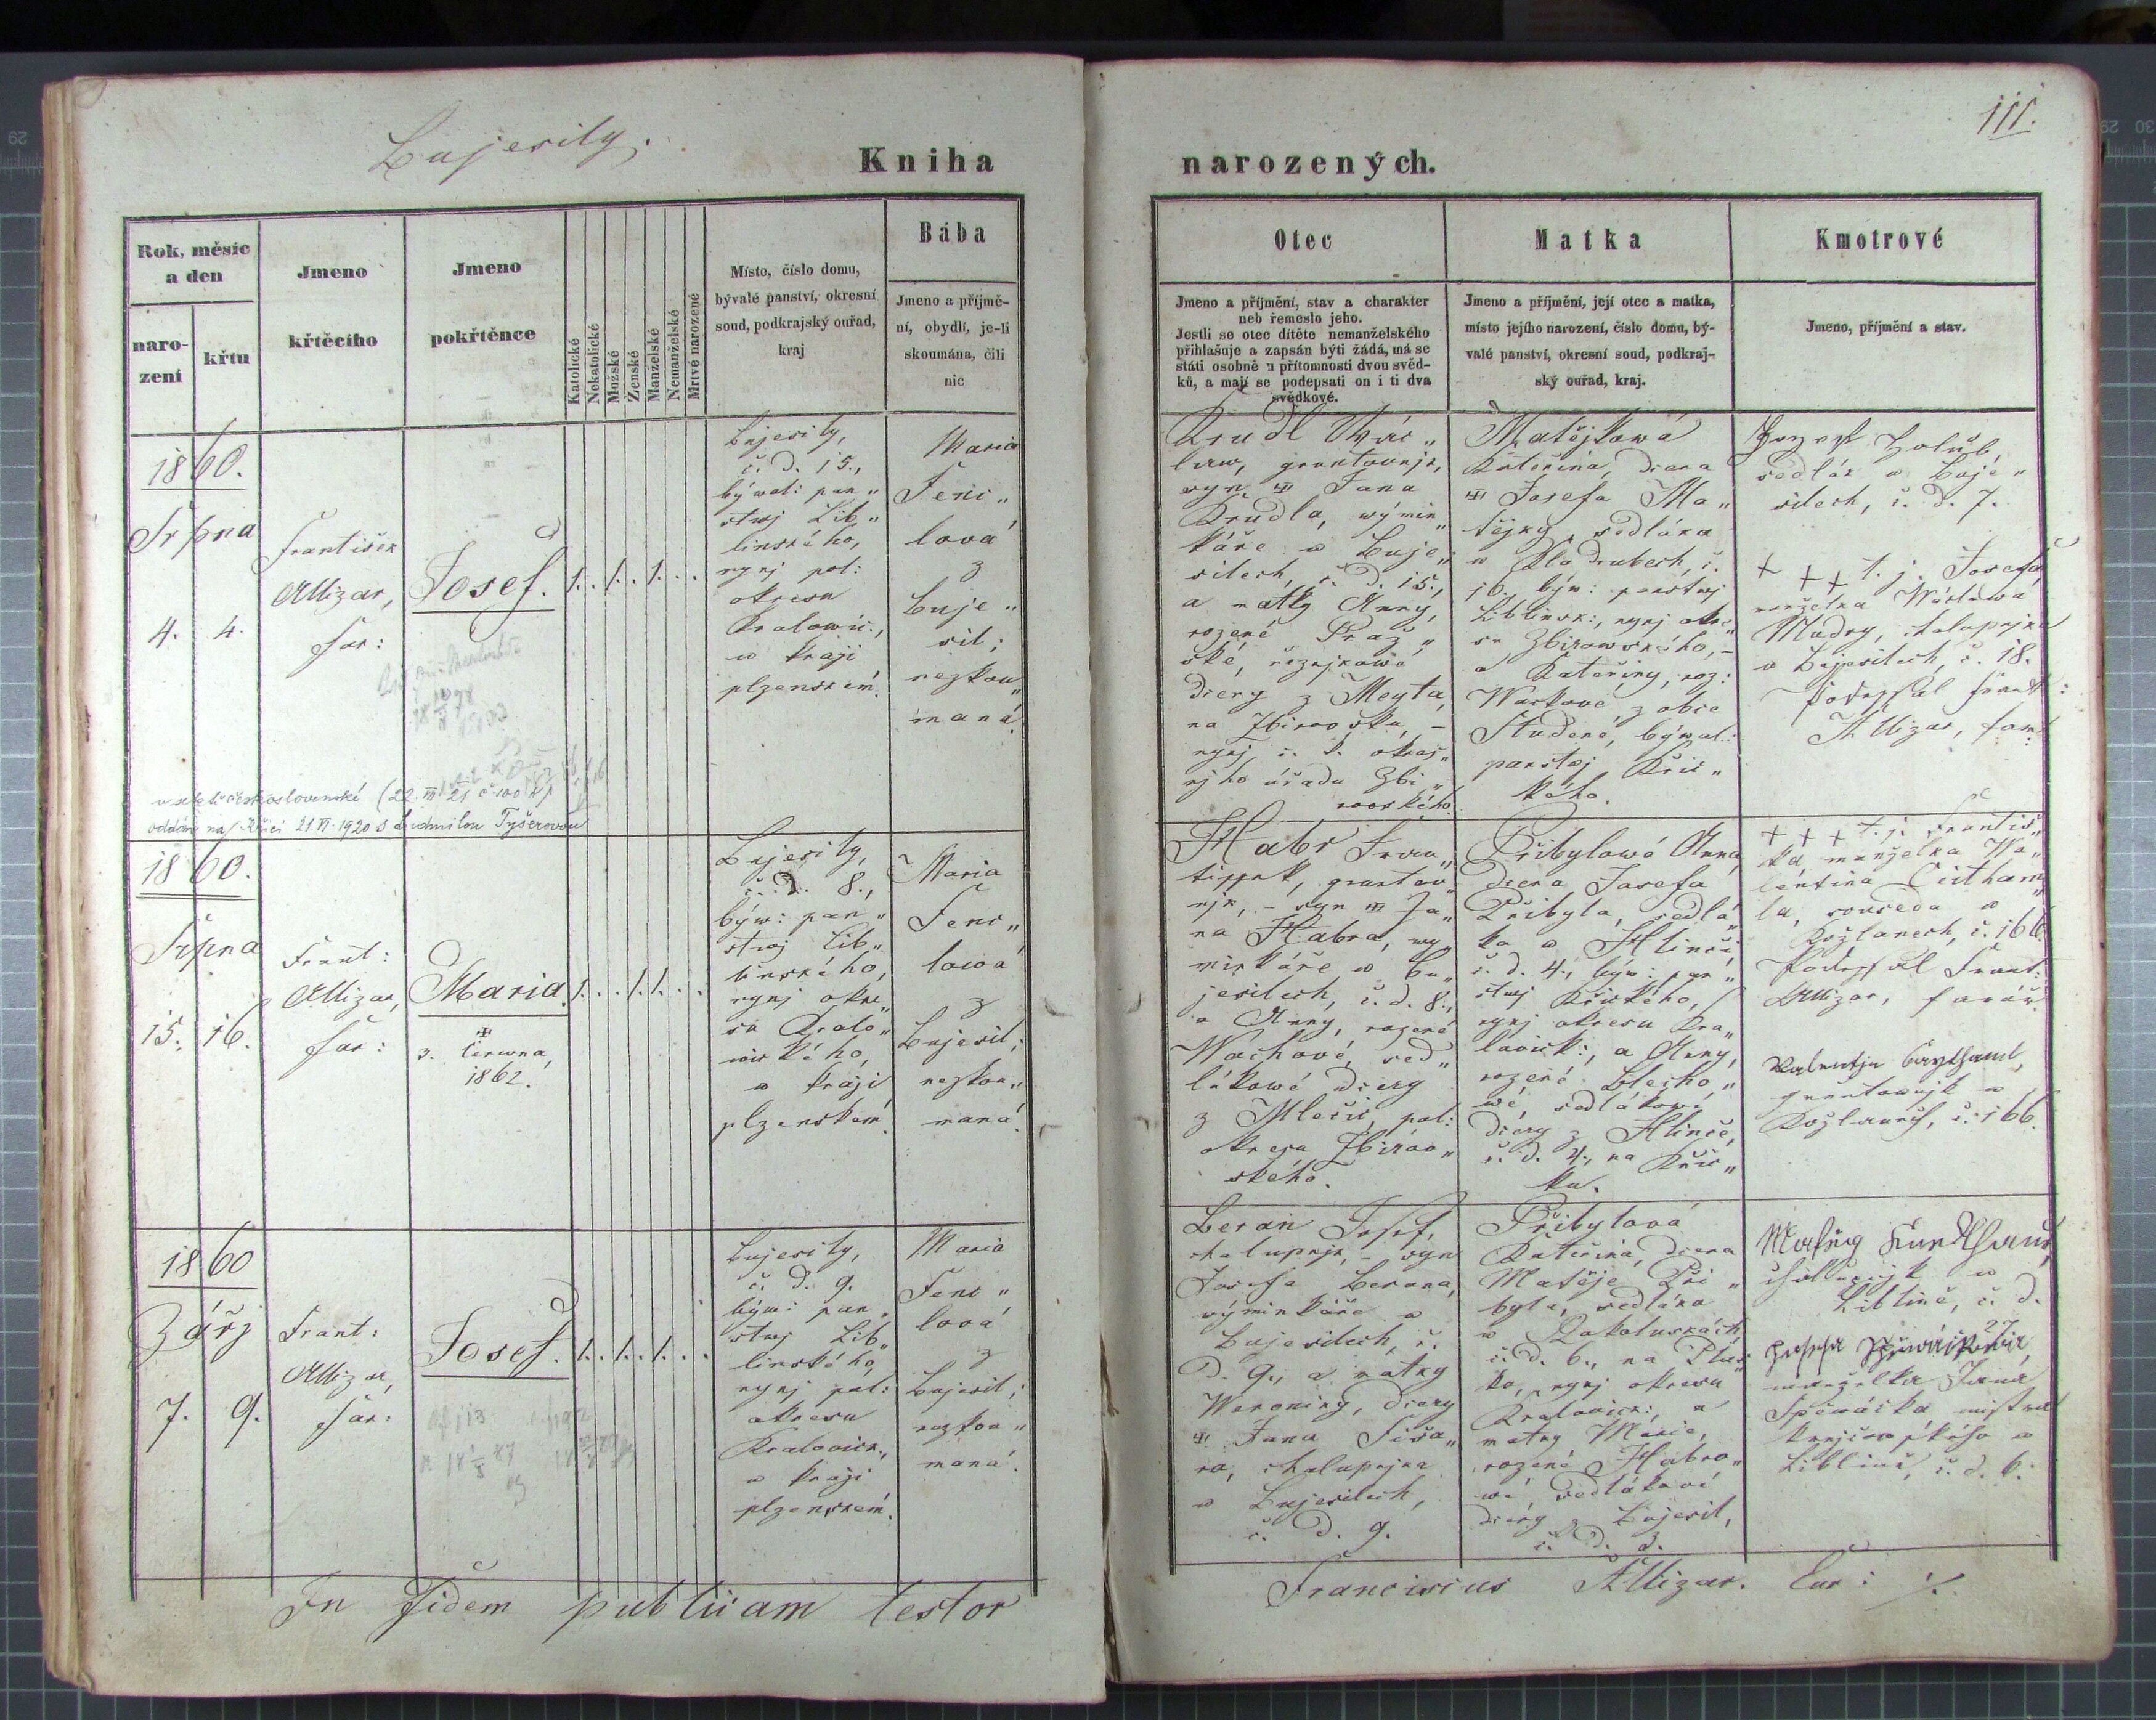 Bujesily.
Kniha
narozených.
111.
Rok, měsíc
a den
naro-
zení
křtu
Jmeno
křtěcího
Jmeno
pokřtěnce
Katolické
Nekatolické
Mužské
Ženské
Manželské
Nemanželské
Mrtvě narozené
Místo, číslo domu,
bývalé panství, okresní
soud, podkrajský ouřad,
kraj
Bába
Jmeno a příjmě-
ní, obydlí, je-li
skoumána, čili
nic
Otec
Jmeno a příjmění, stav a charakter
neb řemeslo jeho.
Jestli se otec dítěte nemanželského
přihlašuje a zapsán býti žádá, má se
státi osobně u přítomnosti dvou svěd-
ků, a mají se podepsati on i ti dva
svědkové.
Matka
Jmeno a příjmění, její otec a matka,
místo jejího narození, číslo domu, bý-
valé panství, okresní soud, podkraj-
ský ouřad, kraj.
Kmotrové
Jmeno, příjmění a stav.
1860.
Srpna
4. 4.
František
Allizar,
far:
Josef.
1. . 1. . 1. . .
Bujesily,
č. d. 15.,
býwal: pan„
stwj Lib„
linského,
nynj pol:
okresu
Kralowic.,
w kraji
plzenském.
Maria
Fenc„
lová
z
Buje„
sil;
nezkou„
maná.
Krudl Wác„
law, gruntovnjk,
syn Jana
Krudla, wýmin„
káře w Buje„
silech, č. d. 15.,
a matky Anny,
rozené Praž„
ské,
dcery z Meyta,
na Zbirovsku, –
nynj c. k. okres„
njho úřadu Zbi„
rovského.
Matějkowá
Kateřina, dcera
Josefa Ma„
tějky, sedláka
w Kladrubech, č.
10. býw: panstwj
Liblinsk:, nynj okre„
su Zbirowského, –
a Kateřiny, roz:
Wackové, z obce
Studené, býwal:
panstwj Křic„
kého.
Jozef Holub,
sedlák w Buje„
silech, č. d. 7.
+ + + t. j. Josefa,
manželka Wáclawa
Mudry, chalupnjka
w Bujesilech, č. 18.
Podepsal Frant:
Allizar, far:
oddán na Křici 21.VI.1920 s Ludmilou Tyšerovou
1860.
Srpna
15. 16.
Frant:
Allizar,
far:
Maria.
3. Června,
1862.
1. . . 1. 1. . .
Bujesily,
č. d. 8.,
býw: pan„
stwj Lib„
linského,
nynj okre„
su Kralo„
wického,
w kraji
plzenském.
Maria
Fenc„
lowá
z
Bujesil;
nezkou„
maná.
Habr Fran„
tissek, gruntow„
njk, – syn Ja„
na Habra, wý„
minkáře w Bu„
jesilech, č. d. 8.,
a Anny, rozené
Wachové, sed„
lákowé dcery
z Mlečic, pol:
okresu Zbirow„
ského.
Přibylowá Anna,
dcera Josefa
Přibyla, sedlá„
ka w Hlinči,
č. d. 4., býw: pan„
stwj Křického,
nynj okresu Kra„
lovick:, a Anny,
rozené Blecho„
wé, sedlákowé
dcery z Hlinče,
č. d. 4., na Křic„
ku.
+ + + t. j. Františ„
ka, manželka Wa„
lentina Cuitham„
la, souseda w
Kožlanech, č. 166.
Podepsal Frant:
Allizar, farář.
Valentin
gruntownjk w
Kožlanech, č. 166.
1860
Zářj
7. 9.
Frant:
Allizar,
far:
Josef.
1. . 1. . 1. . .
Bujesily,
č. d. 9.
býw: pan„
stwj Lib„
linského,
nynj pol:
okresu
Kralovick.,
w kraji
plzenském.
Maria
Fenc„
lová
z
Bujesil;
nezkou„
maná.
Beran Josef,
chalupnjk, – syn
Josefa Berana,
výminkáře w
Bujesilech, č.
d. 9., a matky
Weroniky, dcery
Jana Fiša„
ra, chalupnjka
w Bujesilech,
č. d. 9.
Přibylová
Kateřina, dcera
Matěje Při„
byla, sedláka
w Zakoluskách
č. d. 6., na Plas„
ku, nynj okresu
Kralovick:, a
matky Marie,
rozené Habro„
wé, sedlákové
dcery z Bujesil,
č. d. 3.
Matěj
chalupnjk w
Liblině, č. d.
27.
manželka Jana
Spěwáčka mistra
krejčowského w
Liblině, č. d. 6.
In fidem publicam testor
Franciscus Allizar. Cur: ./.